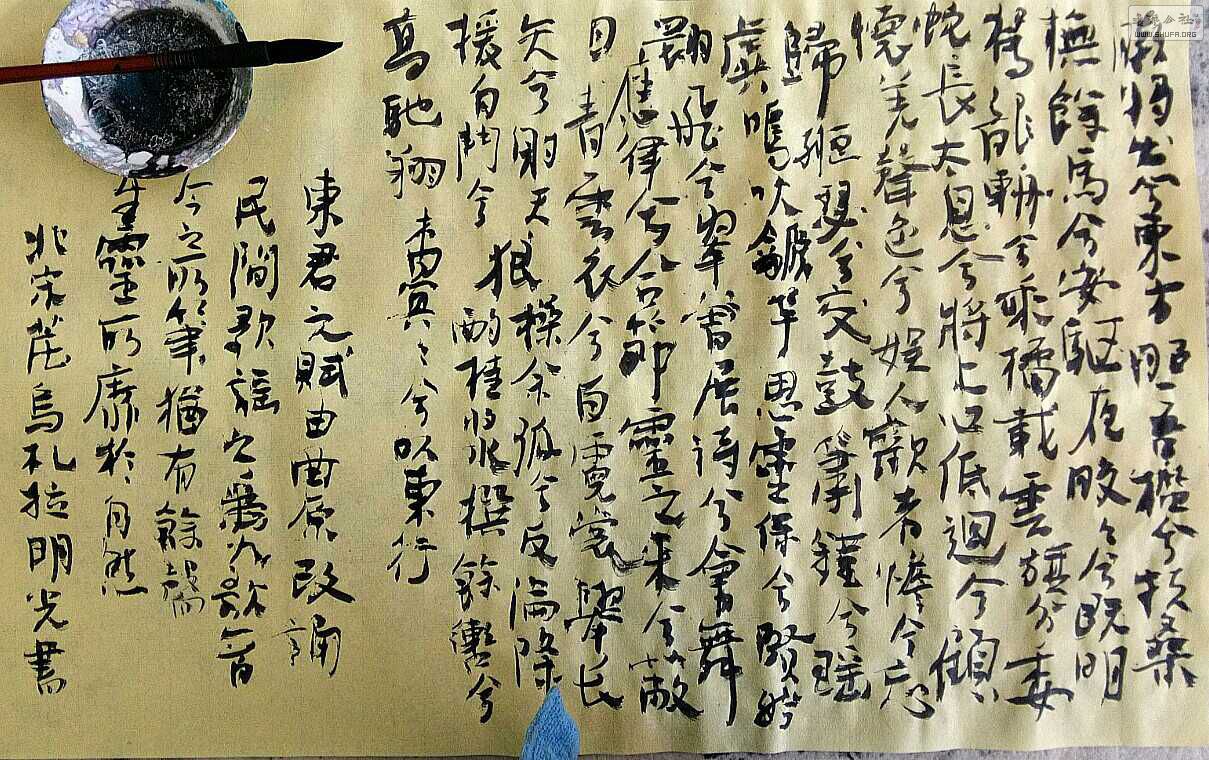 暾将出兮東方照吾檻兮扶桑
撫餘馬兮安驅夜皎々兮既明
駕龍輈兮乘橘載雲旗兮委
蛇長太息兮將上心低迴兮顧
懷羌聲色兮娱人觀者憺兮忘
歸緪瑟兮交鼓簫鍾兮瑶
虡鳴吹龥竽思靈保兮賢姱
翾飛兮翠曾展诗兮會舞
應律兮合節靈之来兮蔽
日青雲衣兮白霓裳舉长
矢兮射天狼操余弧兮反淪降
援自鬥兮酌桂漿撰餘轡兮
高馳翔杳冥々兮以東行
東君之賦由曲原改誦
民間歌謡之為歌
今之所筆猶有餘
生靈所靡於自然
北宗茫烏札拉明光書
書法公社
WWW.SHUFA.ORG